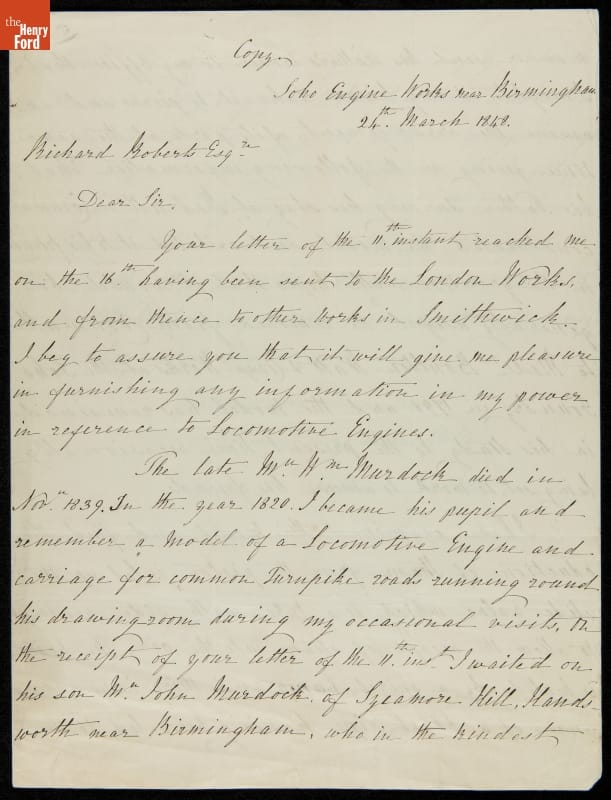 the
Henry
Ford
Copy.
Soho Engine Works near Birmingham
24th. March 1848.
Richard Roberts Esqre
Dear Sir,
Your letter of the 11th. instant, reached me
on the 16th. having been sent to the London Works,
and from thence to other works in Smithwick.
I beg to assure you that it will give me pleasure
in furnishing any information in my power
in reference to Locomotive Engines.
The late Mr. Wm. Murdock died in
Novr. 1839. In the year 1820. I became his pupil and
remember a Model of a Locomotive Engine and
carriage for common Turnpike roads running round
his drawing room during my occasional visits, On
the receipt of your letter of the 11th. inst. I waited on
his son Mr. John Murdock. of Sycamore Hill, Hands-
worth near Birmingham, who in the kindest